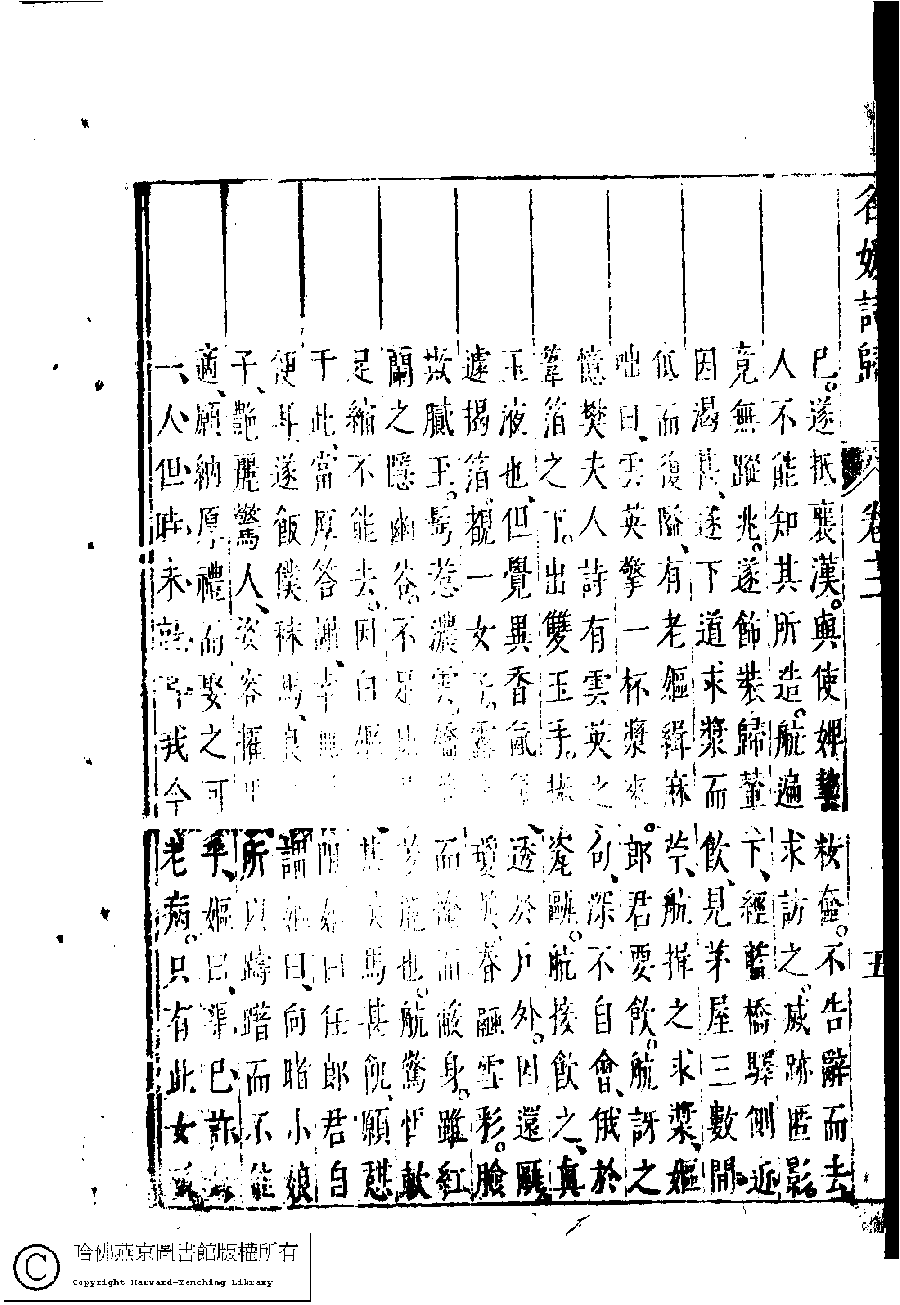 名媛詩歸
五
已。遂抵襄漢。與使婢挈粧奩。不告辭而去
人不能知其所造。航遍求訪之。滅跡匿影。
竟無蹤兆。遂飾裝歸輦下、經藍橋驛側近
因渴甚、遂下道求漿而飲、見茅屋三數間
低而復隘、有老嫗緝麻苧、航揖之求漿、嫗
咄曰、雲英擎一杯漿來。郎君要飲。航訝之
憶樊夫人詩有雲英之句、深不自會、俄於
葦箔之下。出雙玉手。捧瓷甌。航接飲之、真
玉液也、但覺異香氤透於戶外。因還甌
遽揭箔。覩一女子露瓊英。春融雪彩。臉
欺膩玉。鬓惹濃雲嬌而掩面蔽身。雖紅
蘭之隱幽谷。不足芳麗也。航驚怛
足縮不能去。因白嫗僕馬甚飢。願憩
于此、當厚答謝、幸曰任郎君自
便耳遂飯僕秣馬、良謂嫗曰、向睹小娘
子、艷麗驚人、姿容擢所以躊躇而不能
適、願納厚禮而娶之可乎、嫗曰、渠已許
一人、但時未就耳我今老病。只有此女
哈佛燕京圖書館版權所有
Copyright Harvard-Yenching Library